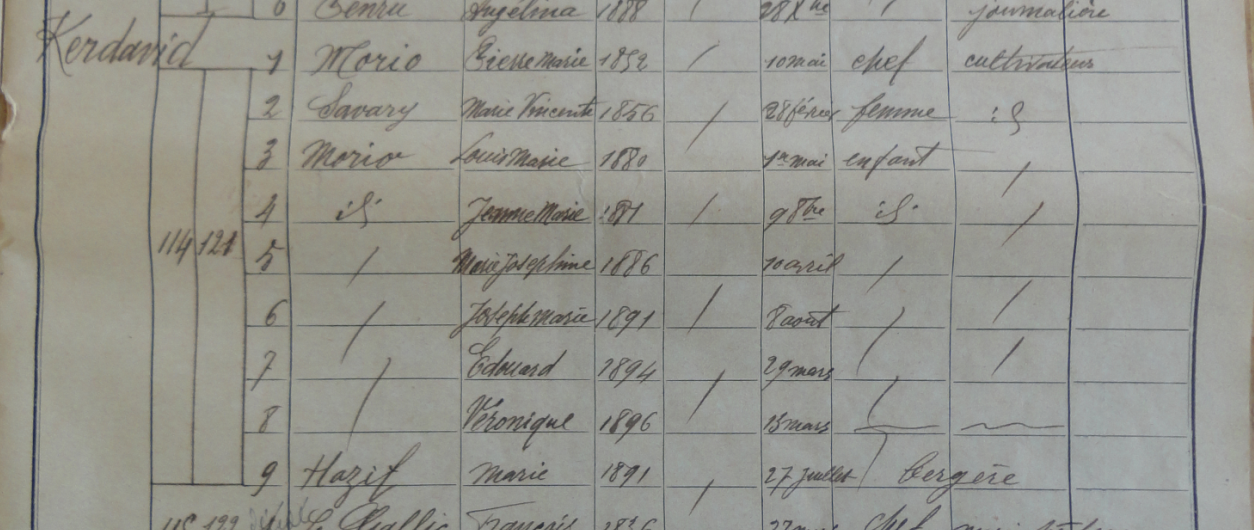 6 Angélina 1888 / 28 Xbre / journalière
Kerdavid 1 Morio Pierre Marie 1852 / 10 mai chef cultivateurs
2 Savary Marie Vincente 1856 / 28 février femme id
3 Morio Louis Marie 1880 1er mai enfant /
4 id Jeanne Marie / 9 8bre id /
114 121 5 / Marie Josephine 1886 10 avril /
6 / Joseph Marie 1891 / 8 aout / /
7 / Edouard 1894 / 29 mars / /
8 Véronique 1896 13 mars
9 Hazif Marie 1891 / 27 juillet bergère
115 122 François chef